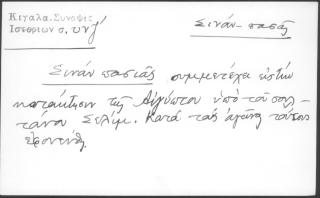 Κιγάλα. Σύνοψις
Ιστοριών σ. υνζ´
Σινάν-πασᾶς
Σινάν πασιᾶς συμμετέχει εἰς τὴν
κατάκτησιν τῆς Αἰγύπτου ὑπὸ τοῦ σουλ-
τάνου Σελίμ. Κατὰ τὰς ἀγῶνας τούτους
ἐφονεύθη.